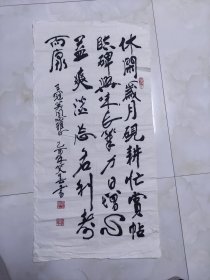 休閑歲月硯耕忙賞帖
臨碑興味長筆力日增心
益爽淡忘名利壽
而康